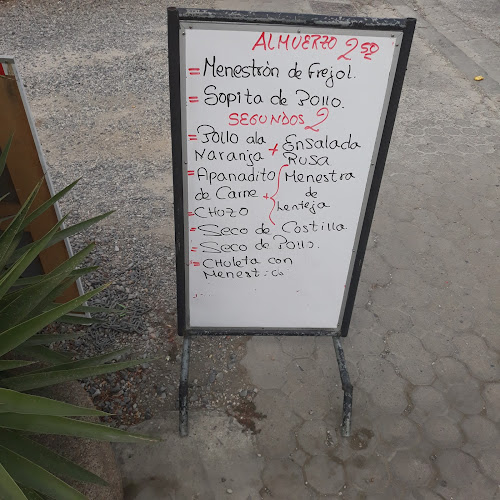 ALMUERZO 2 50
= Menestrón de Frejol.
= Sopita de Pollo.
SEGUNDOS 2
= Pollo ala + Ensalada
Naranja Rusa
= Apanadito Menestra
de Carne + de
= CHUZO Lenteja
= Seco de Costilla
= Seco de Pollo.
= CHuleta con